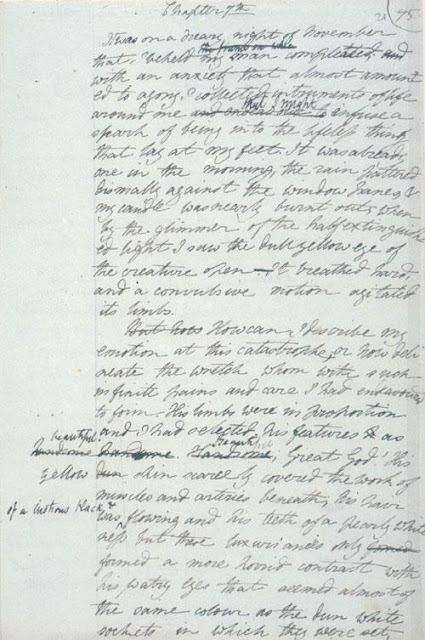 Chapter 7th
21 95
It was on a dreary night of November
the frame on whic
that I beheld my man completed and
with an anxiety that almost amount
ed to agony I collected instruments of life
that I might
around me and to infuse a
spark of being into the lifeless thing
that lay at my feet. It was already
one in the morning, the rain pattered
dismally against the window panes &
my candle was nearly burnt out, when
by the glimmer of the half extinguish
ed light I saw the dull yellow eye of
the creature open — It breathed hard
and a convulsive motion agitated
its limbs.
But how How can I describe my
emotion at this catastrophe, or how deli
neate the wretch whom with such
infinite pains and care I had endeavoured
to form. His limbs were in proportion
and I had selected his features & as
beautiful
handsome handsome. Handsome, Great God! His
Beautiful
yellow dun skin scarcely covered the work of
muscles and arteries beneath; his hair
of a lustrous black &
was flowing and his teeth of a pearly white
ness but these luxuriances only formed
formed a more horrid contrast with
his watry eyes that seemed almost of
the same colour as the dun white
sockets in which they were set,